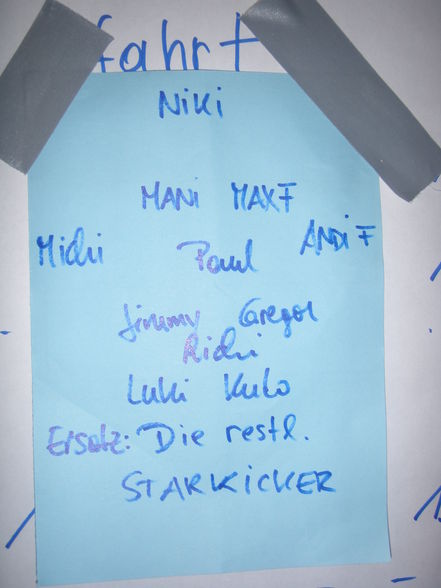 fahrt
Niki
MANi MAXF
Michi Paul ANDi F
Jimmy Gregor
Richi
Luki Kulo
Ersatz: Die restl.
STARKiCKER